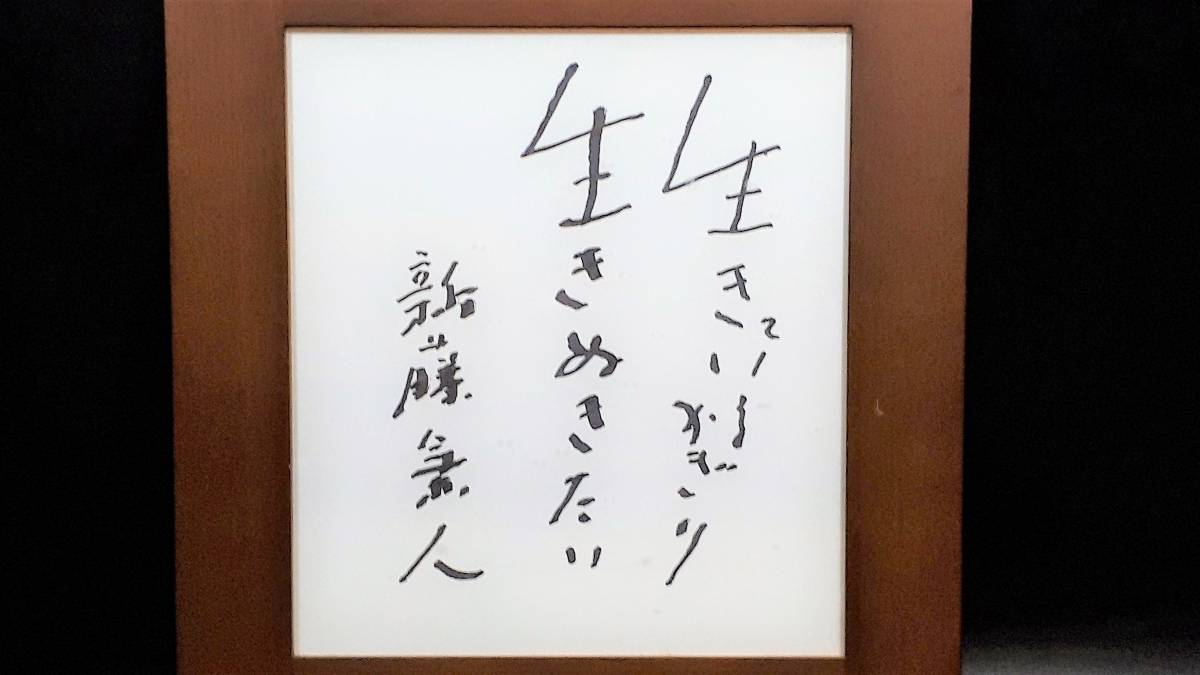 生きているかぎり
生きぬきたい
新藤兼人